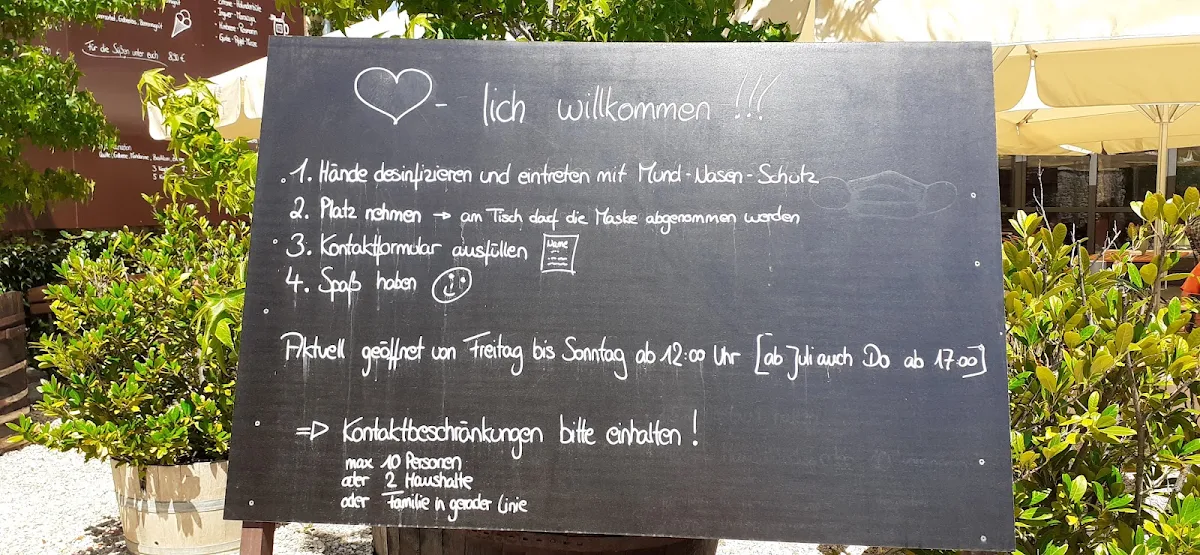 Für die Süßen unter euch 8,30 €
- lich willkommen !!!
1. Hände desinfizieren und eintreten mit Mund-Nasen-Schutz
2. Platz nehmen → am Tisch darf die Maske abgenommen werden
3. Kontaktformular ausfüllen
Name
4. Spaß haben
Aktuell geöffnet von Freitag bis Sonntag ab 12:00 Uhr [ab Juli auch Do ab 17:00]
=> Kontaktbeschränkungen bitte einhalten!
max 10 Personen
oder 2 Haushalte
oder Familie in gerader Linie